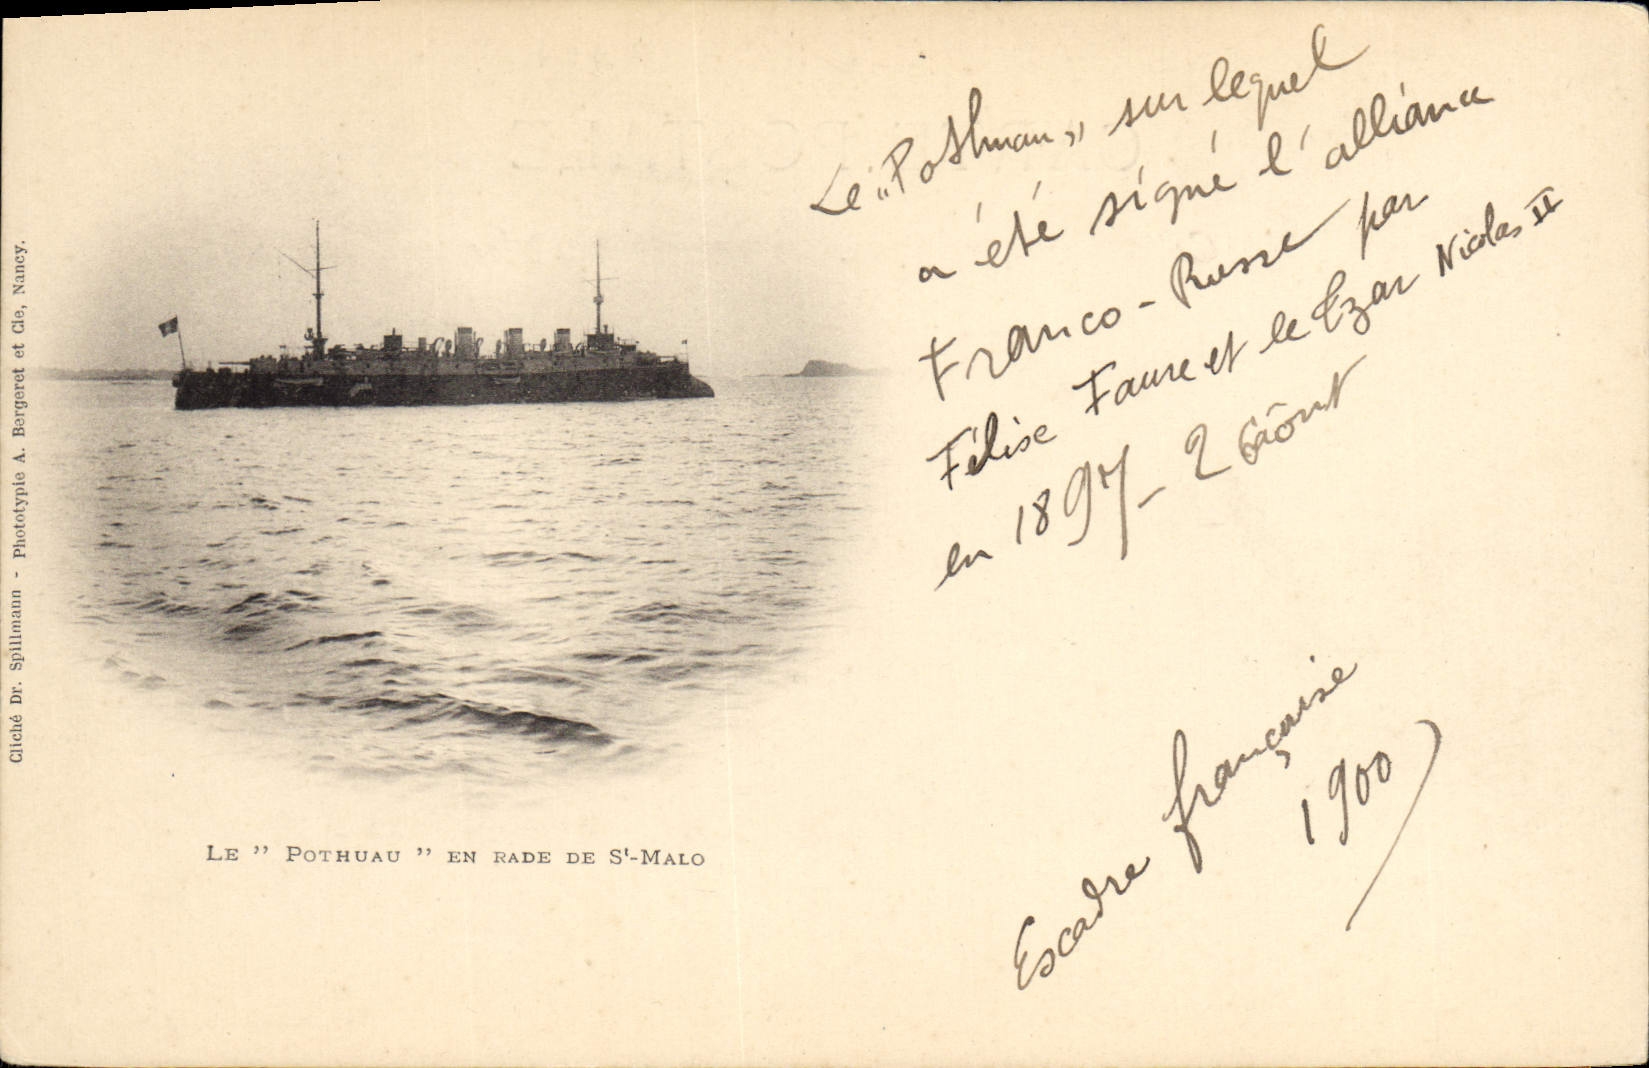 Le "Pothuau" sur lequel
a été signé l'alliance
Franco-Russe par
Félise Faure et le Czar Nicolas II
en 1897 - 26 août
Escadre française
1900
LE " POTHUAU " EN RADE DE St-MALO
Cliché Dr. Spillmann - Phototypie A. Bergeret et Cie, Nancy.